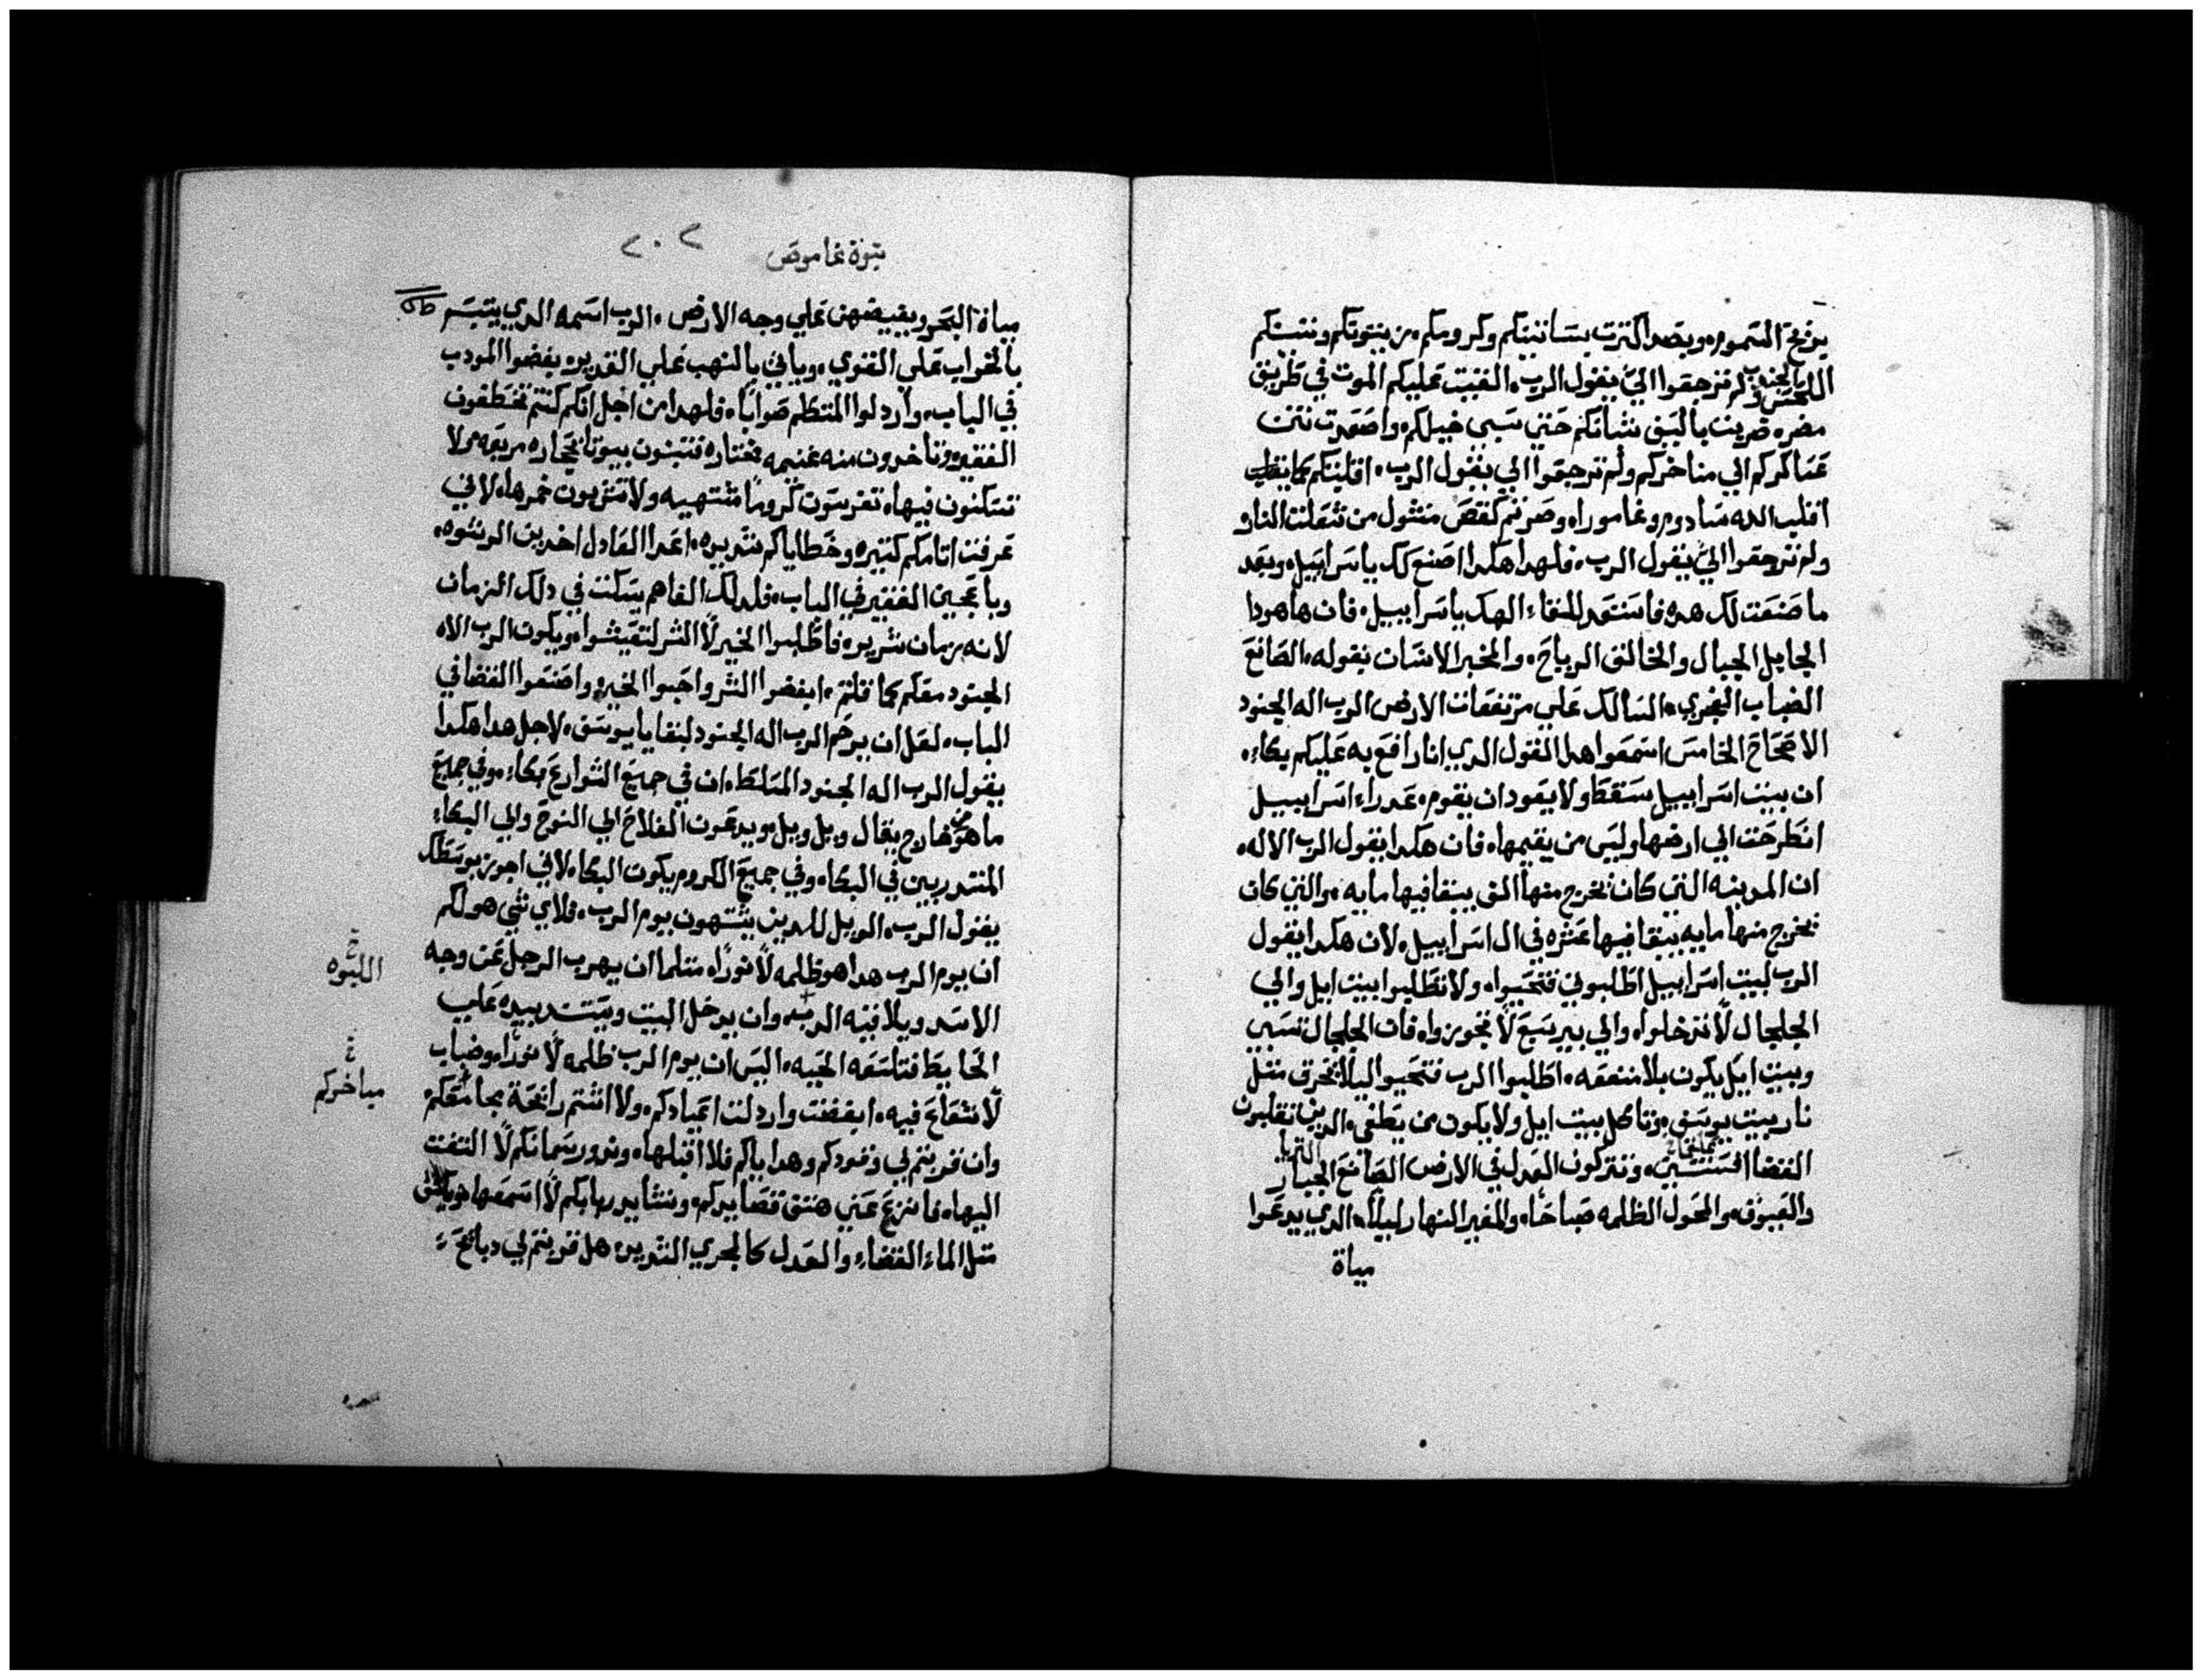 بريح السموم وبصدا اكترت بساتينكم وكرومكم من بيتوتكم وتيتنكم
اللحس ولم ترجعوا الي يقول الرب، القيت عليكم الموت في طريق
بالجندب
مصر، ضربت بالسيف شبانكم حتي سبي خيلكم واصعدت نتن
عساكركم الي مناخركم ولم ترجعوا الي يقول الرب، اقلبتكم كما
اقلب الله سادوم وغامورا، وصرتم كقبص منشول من شعلت النار
ولم ترجعوا الي يقول الرب، فلهدا هكدا اصنع لك ياسراييل، وبعد
ما صنعت لك هده فاستعد للقاء الهك ياسراييل، فان هاهودا
الجابل الجبال والخالق الرياح، والمخبر الانسان بقوله، الصانع
الضباب الفجري، السالك علي مرتفعات الارض الرب اله الجنود
الاصحاح الخامس اسمعوا هدا القول الدي انا رافع به عليكم بكاء،
ان بيت اسراييل سقط ولا يعود ان يقوم، عدراء اسراييل
انطرحت الي ارضها وليس من يقيمها، فان هكدا يقول الرب الاله،
ان المدينه التي كان يخرج منها الف يبقا فيها مايه، والتي كان
تخرج منها مايه يبقا فيها عشره في ال اسراييل، لان هكدا يقول
الرب لبيت اسراييل اطلبوني فتحيوا، ولا تطلبوا بيت ايل والي
الجلجال لا تدخلوا، والي بير سبع لا تجوزوا، فان الجلجال تسبي
وبيت ايل يكون بلا منفعه، اطلبوا الرب فتحيوا ليلا تحرق متل
نار بيت يوسف، وتاكل بيت ايل ولا يكون من يطفي، الدين تقلبون
القضا افسنتين، وتتركون العدل في الارض الصانع الجبار
الثريا
والعيوق، والمحول الظلمه صباحا، والمغير النهار ليلا، الدي يدعوا
مياة
نبوة غاموص ٢٠٢
مياة البحر ويفيضهن علي وجه الارض، الرب اسمه الدي يتبسم
بالخراب علي القوي، وياتي بالنهب علي القدير، بغضوا المودب
في الباب، واردلوا المتكلم صوابا، فلهدا من اجل انكم كنتم تختطفون
الفقير وتاخدون منه غنيمه مختاره فتبنون بيوتا بحجاره مربعه ولا
تسكنون فيها، تغرسون كروما مشتهيه ولا تشربون خمرها، لاني
عرفت اتامكم كتيره وخطاياكم شديده، اعدا العادل اخدين الرشوه،
وباعجين الفقير في الباب، فلدلك الفاهم يسكت في دلك الزمان
لانه زمان شرير، فاطلبوا الخير لا الشر لتعيشوا، ويكون الرب الاه
الجنود معكم كما قلتم، ابغضوا الشر واحبوا الخير، واصنعوا القضا في
الباب، لعل ان يرحم الرب اله الجنود لبقايا يوسف، لاجل هدا هكدا
يقول الرب اله الجنود المتسلط، ان في جميع الشوارع بكاء، وفي جميع
ما هو من خارج يقال ويل ويل، ويدعون الفلاح الي النوح والي البكاء
المتدربين في البكاء، وفي جميع الكروم يكون البكاء، لاني اجوز بوسطك
يقول الرب، الويل للدين يشتهون يوم الرب، فلاي شي هو لكم
ان يوم الرب هدا هو ظلمه لا نورا، متلما ان يهرب الرجل عن وجه
الاسد ويلاقيه الدب، وان يدخل البيت ويستند بيده علي
الحايط فتلسعه الحيه، اليس ان يوم الرب ظلمه لا نورا، وضباب
لا شعاع فيه، ابغضت واردلت اعيادكم، ولا اشتم رايحة مجامعكم
وان قربتم لي وقودكم وهداياكم فلا اقبلها، وندور سمانكم لا التفت
اليها، فانزع عني هتف قصايدكم، ونشايد ربابكم لا اسمعها
متل الماء القضاء، والعدل كالمجري الشديد، هل قربتم لي دبايح
خ
اللبوه
خ
مباخركم